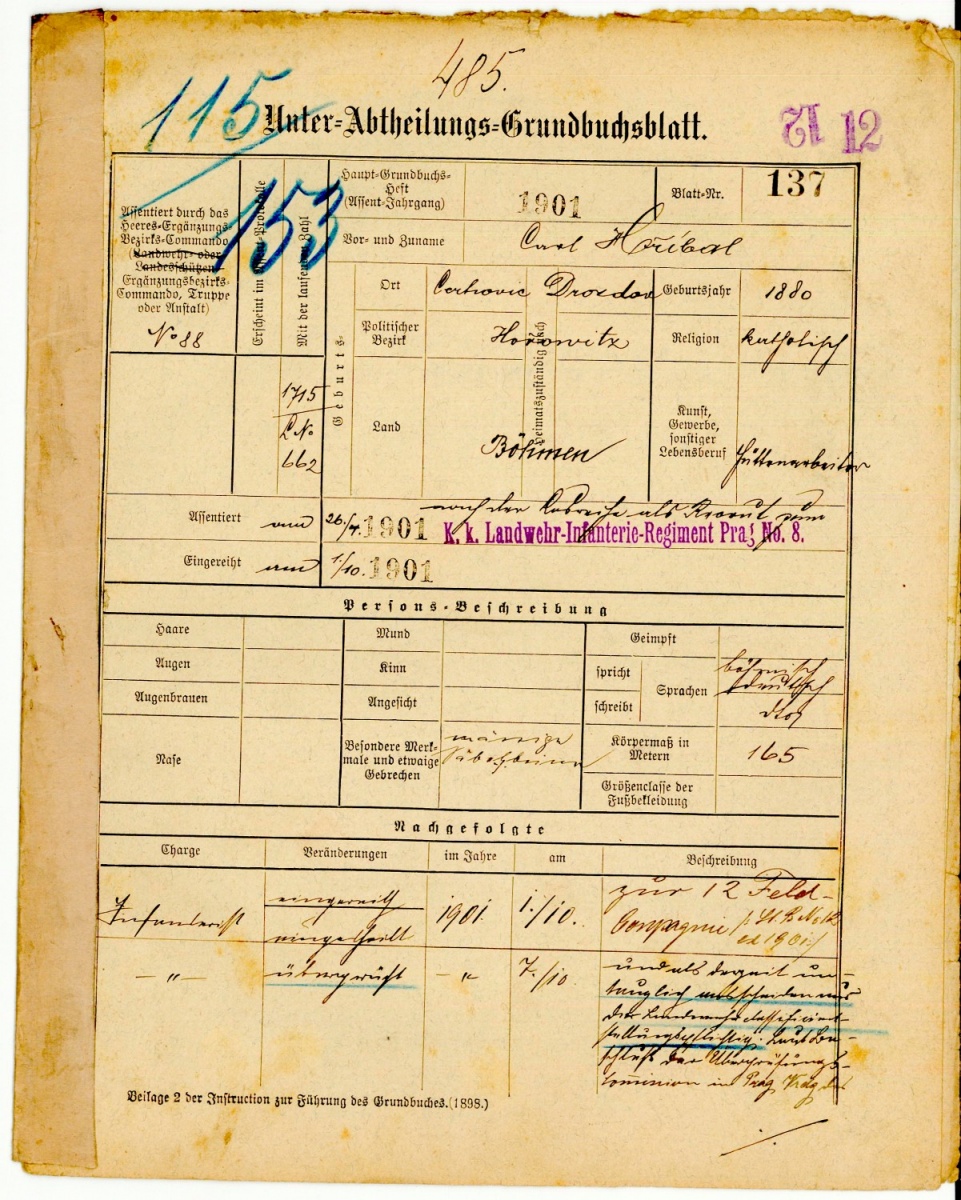 485.
115
Unter-Abtheilungs-Grundbuchsblatt.
12 12
153
Assentiert durch das
Heeres-Ergänzungs-
Bezirks-Commando
(Landwehr- oder
Landesschützen-
Ergänzungsbezirks-
Commando, Truppe
oder Anstalt)
No 88
Erscheint im
Mit der laufenden Zahl
1715
L No
662
Haupt-Grundbuchs-
Heft
(Assent-Jahrgang)
1901
Blatt-Nr.
137
Vor- und Zuname
Carl Hříbal
Geburts-
Ort
Drozdov
Geburtsjahr
1880
Politischer
Bezirk
Hořowitz
Heimatszuständig
Religion
katholisch
Land
Böhmen
Kunst,
Gewerbe,
sonstiger
Lebensberuf
Hüttenarbeiter
Assentiert am 26./4. 1901 nach der Losreihe als Recrut zum
K. k. Landwehr-Infanterie-Regiment Prag No. 8.
Eingereiht am 1/10. 1901
Persons-Beschreibung
Haare
Mund
Geimpft
Augen
Kinn
spricht
Sprachen
böhmisch
deutsch
Augenbrauen
Angesicht
schreibt
dto
Nase
Besondere Merk-
male und etwaige
Gebrechen
mässige
Säbelbeine
Körpermaß in
Metern
165
Größenclasse der
Fußbekleidung
Nachgefolgte
Charge Veränderungen im Jahre am Beschreibung
Infanterist
eingereiht
eingetheilt
1901 1./10.
zur 12 Feld-
Compagnie
ex 1901
— „ — überprüft — „ 7./10
und als derzeit un-
tauglich ausscheiden aus
der Landwehr classificiert
stellungspflichtig. Laut Be-
schluß der Überprüfungs-
commission in Prag
Beilage 2 der Instruction zur Führung des Grundbuches.(1898.)